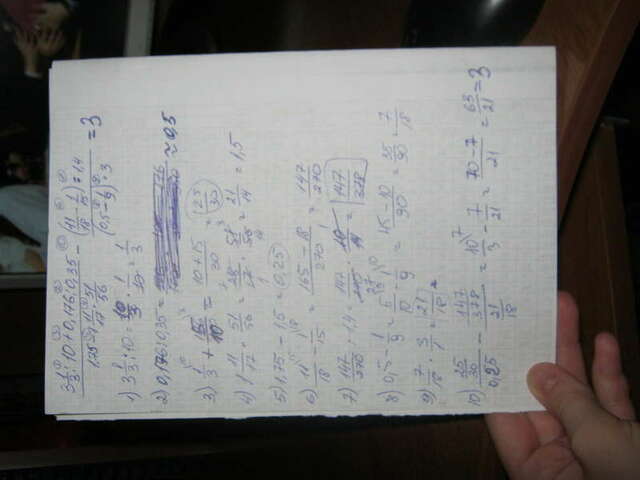 3 1/3 : 10 + 0,175 : 0,35 / 1,75 - 1 11/17 · 51/56 - (11/18 - 1/15) : 1,4 / (0,5 - 1/9) · 3 = 3
1) 3 1/3 : 10 = 10/3 · 1/10 = 1/3
2) 0,175 : 0,35 = ≈ 0,5
3) 1/3 + 15/10 = 10+15/30 = 25/30
4) 1 11/17 · 51/56 = 28/17 · 51/56 = 21/14 = 1,5
5) 1,75 - 1,5 = 0,25
6) 11/18 - 1/15 = 165-18/270 = 147/270
7) 147/270 : 1,4 = 147/378
8) 0,5 - 1/9 = 5/10 - 1/9 = 45-10/90 = 35/90 = 7/18
9) 7/18 · 3/1 = 21/18
10) 25/30 / 0,25 - 147/378 / 21/18 = 10/3 - 7/21 = 70-7/21 = 63/21 = 3